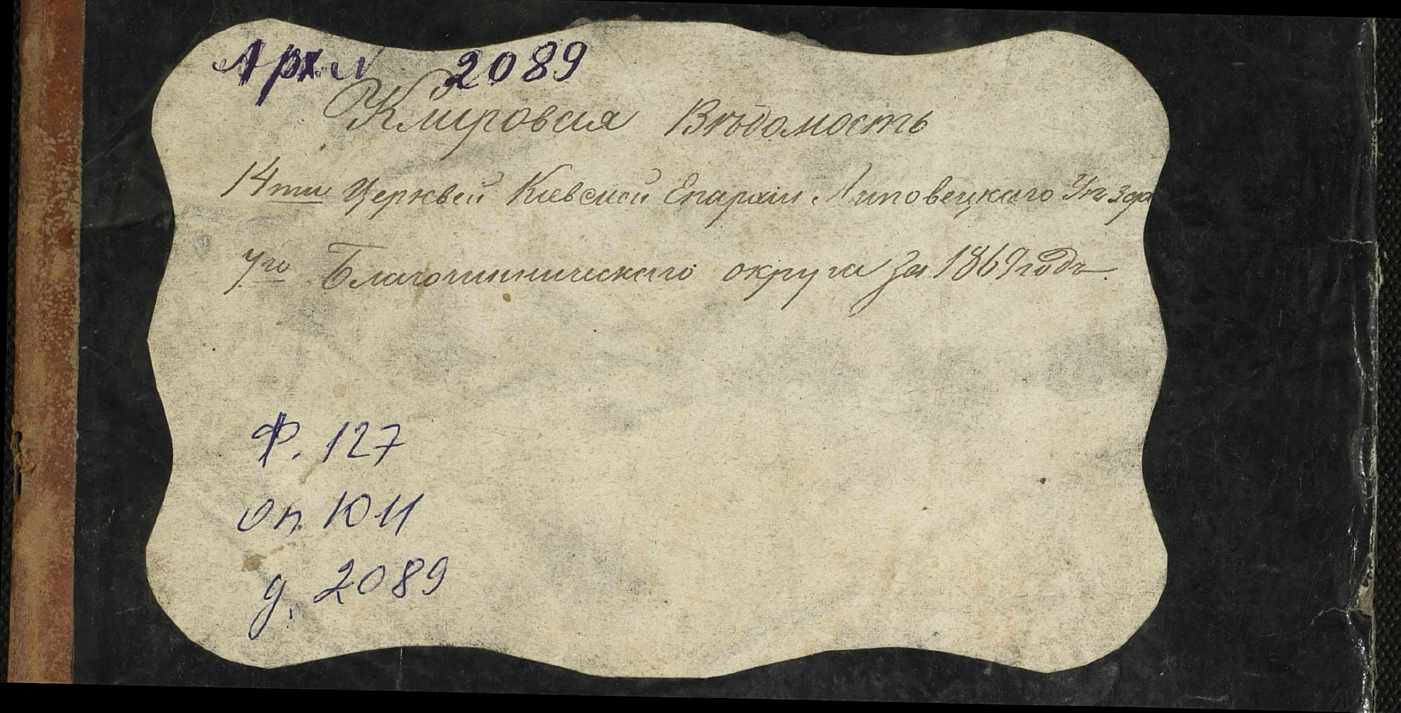 Арх. № 2089
Клировая Вѣдомость
14ти Церквей Кіевской Епархіи Липовецкаго Уѣзда
7го Благочинническаго округа за 1869 годъ.
Ф. 127
оп. 1011
д. 2089